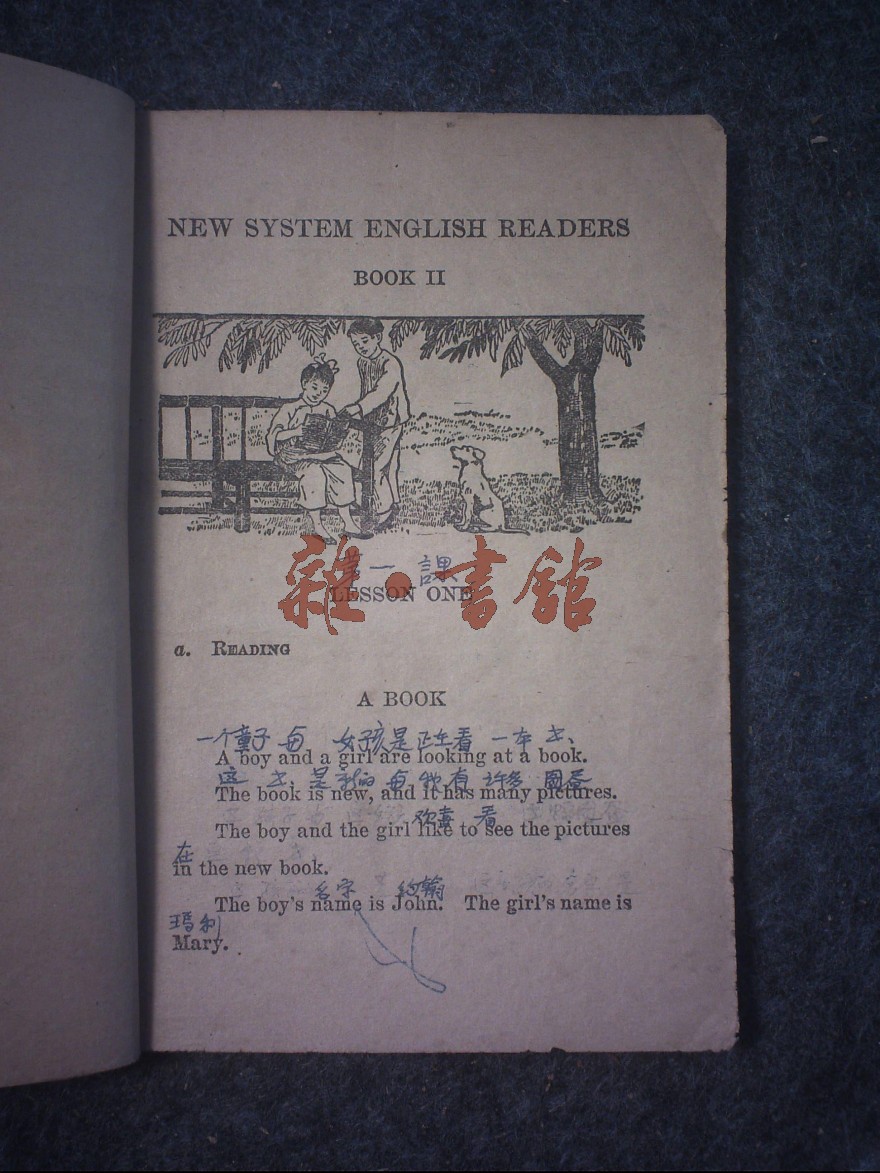 NEW SYSTEM ENGLISH READERS
BOOK II
第一課
雜·書館
LESSON ONE
a. READING
A BOOK
一个童子 女孩是正在看 一本书
A boy and a girl are looking at a book.
这 书 是新的 有 许多 圖
The book is new, and it has many pictures.
欢喜 看
The boy and the girl like to see the pictures
在
in the new book.
名字 约翰
The boy's name is John. The girl's name is
瑪利
Mary.